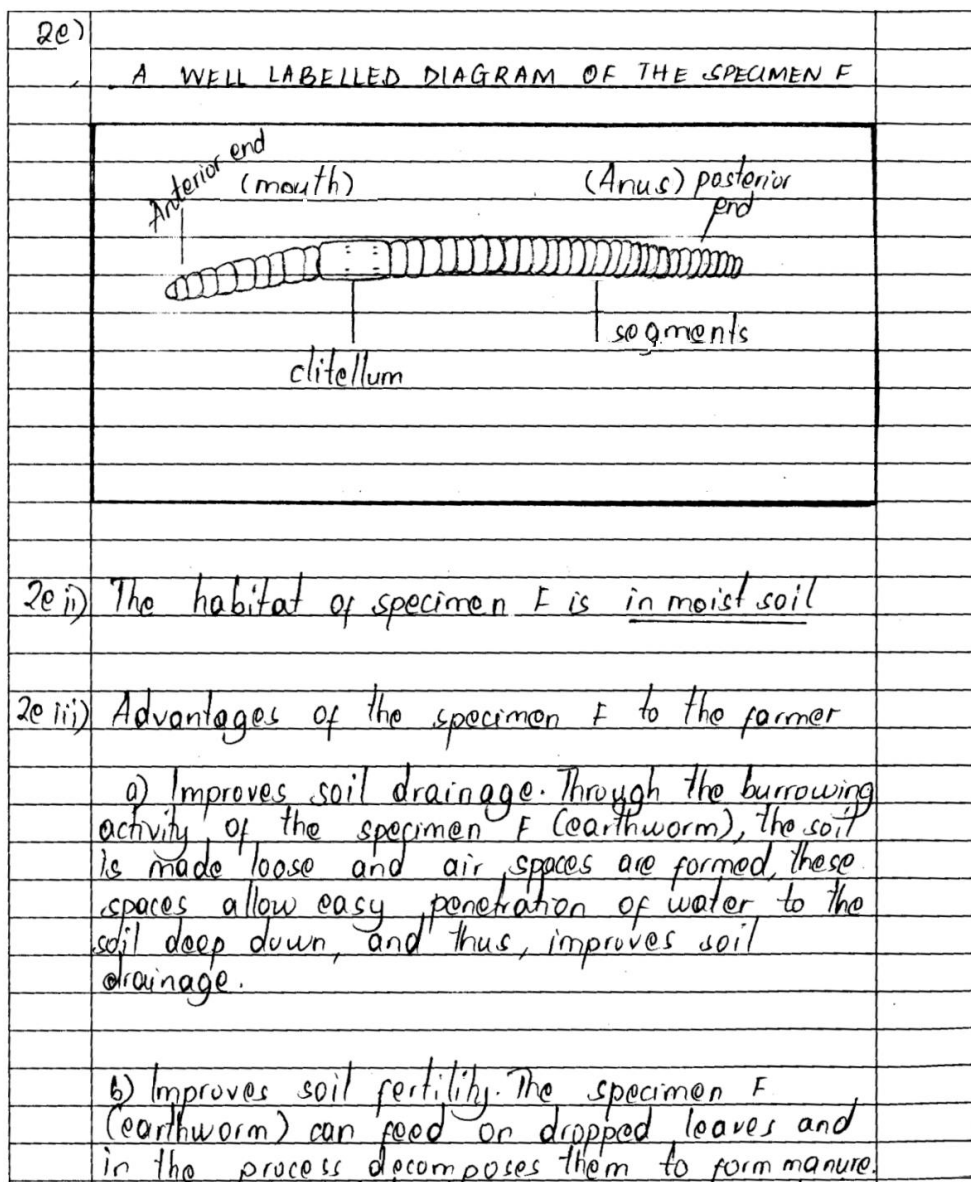 2e)
A WELL LABELLED DIAGRAM OF THE SPECIMEN F
Anterior end
(mouth)
(Anus) posterior
end
segments
clitellum
2e ii) The habitat of specimen F is in moist soil
2e iii) Advantages of the specimen F to the farmer
a) Improves soil drainage. Through the burrowing
activity of the specimen F (earthworm), the soil
is made loose and air spaces are formed, these
spaces allow easy penetration of water to the
soil deep down, and thus, improves soil
drainage.
b) Improves soil fertility. The specimen F
(earthworm) can feed on dropped leaves and
in the process decomposes them to form manure.